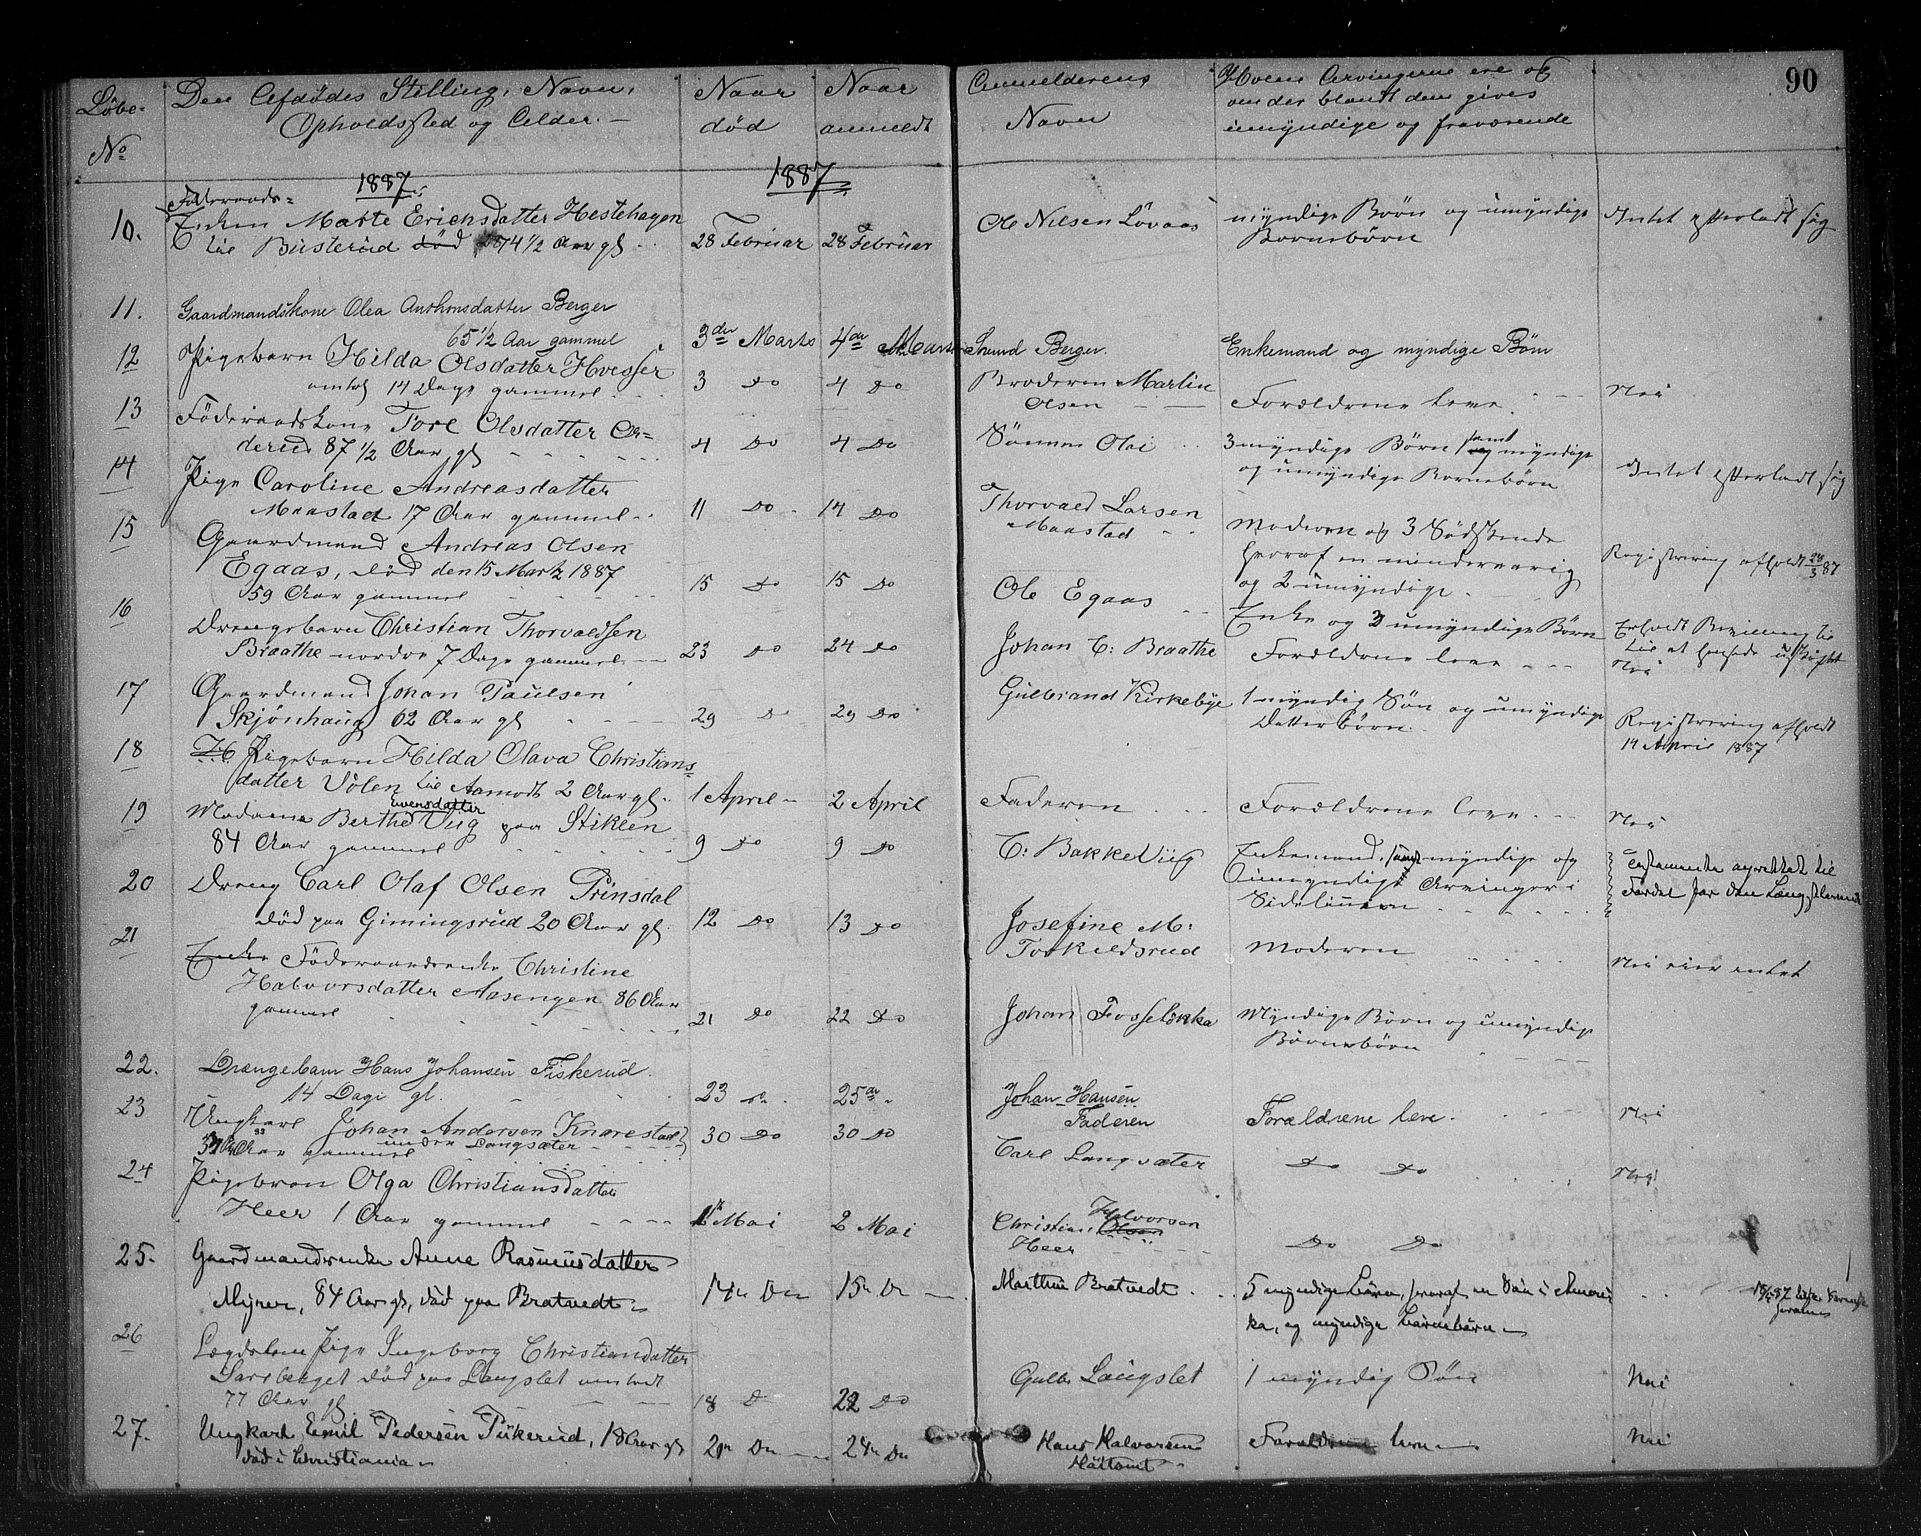 90
Løbe- No
Den Afdødes Stilling, Navn,
Opholdssted og Alder.
Naar død
Naar anmeldt
Anmelderens Navn
Hvem Arvingerne ere og
om der blandt dem gives
umyndige og fraværende
1887.
1887
10.
Enken Marte Erichsdatter Hestehagen
Lie Busterud død 74 1/2 Aar gl
28 Februar
28 Februar
Ole Nilsen Løvaas
myndige Børn og umyndige
Bornebørn
Intet efterladt sig
11.
Gaardmandskone Olea Anthonsdatter Berger
65 1/2 Aar gammel
3die Marts
4de Marts
Berger
Enkemand og myndige Børn
12
Pigebarn Hilda Olsdatter Huesser
omtot 14 Dage gammel
3 Do
4 Do
Broderen Martin
Olsen
Forældrene leve.
Nei
13
Föderaadskone Tore Olsdatter
derud 87 1/2 Aar gl
4 Do
4 Do
Sønnen Olai
3 myndige Børn samt myndige
og umyndige Bornebörn
Intet efterladt sig
14
Pige Caroline Andreasdatter
Maastad 17 Aar gammel
11 Do
14 Do
Thorvald Larsen
Maastad
Moderen og 3 Södskende
hvoraf en mindreaarig
og 2 umyndige.
Registrering afholdt 26/3 87
15
Gaardmand Andreas Olsen
Egaas, død den 15 Marts 1887
59 Aar gammel
15 Do
15 Do
Ole Egaas
Enke og 3 umyndige Børn
16
Drengebarn Christian Thorvaldsen
Braathe nordre 7 Dage gammel
23 Do
24 Do
Johan C. Braathe
Forældrene leve
Nei
17
Gaardmand Johan Paulsen
Skjønhaug 62 Aar gl
29 Do
29 Do
Gulbrand Kirkebye
1 myndig Søn og umyndige
Datterbörn.
Registrering afholdt
14 April 1887
18
Pigebarn Hilda Olava Christians-
datter Volen Lie Aamodt 2 Aar gl.
1 April
2 April
Faderen
Forældrene leve
Nei
19
Evensdatter
Madame Berthe Viig paa Stiklen
84 Aar gammel
9 Do
9 Do
C: Bakke Viig
Enkemand, samt myndige og
umyndige Arvinger i
Sidelinien
Testamente oprettet til
Fordel for den Længstlevende
20
Dreng Carl Olaf Olsen Prinsdal
død paa Gimingsrud 20 Aar gl.
12 Do
13 Do
Josefine M:
Torkildsrud
Moderen
Nei eier intet
21
Enke Föderaadsenke Christine
Halvorsdatter Aasengen 86 Aar
gammel
21 Do
22 Do
Johan Fosseløkka
Myndige Börn og umyndige
Börnebörn
22.
Drængebarn Hans Johansen Fiskerud.
14 Dage gl.
23 do.
25de
Johan Hansen
Faderen
Forældrene leve.
Nei
23
Ungkarl Johan Andersen Knarestad
Aar gammel under Langsæter
30 Do
30 Do
Carl Langsæter
Do Do
Nei
24
Pigebarn Olga Christiansdatter
Heer 1 Aar gammel
1 Mai
2 Mai
Halvorsen
Christian Olsen
Heer
Do Do
25.
Gaardmandsenke Anne Rasmusdatter
Myrer, 84 Aar gl, død paa Bratvedt
14 Do
15 Do
Marthin Bratvedt
5 myndige Børn, hvoraf en Søn i Ameri-
ka, og myndige børnebørn
26
Lægdslem Pige Ingeborg Christiansdatter
død paa Langslet omtrent
77 Aar gl
18 Do
22 Do
Gulb. Langslet
1 myndig Søn
Nei
27.
Ungkarl Emil Pedersen Pukerud, 18 Aar gl
død i Christiania
Do
24 Do
Hans Halvorsen
Forældrene leve
Nei